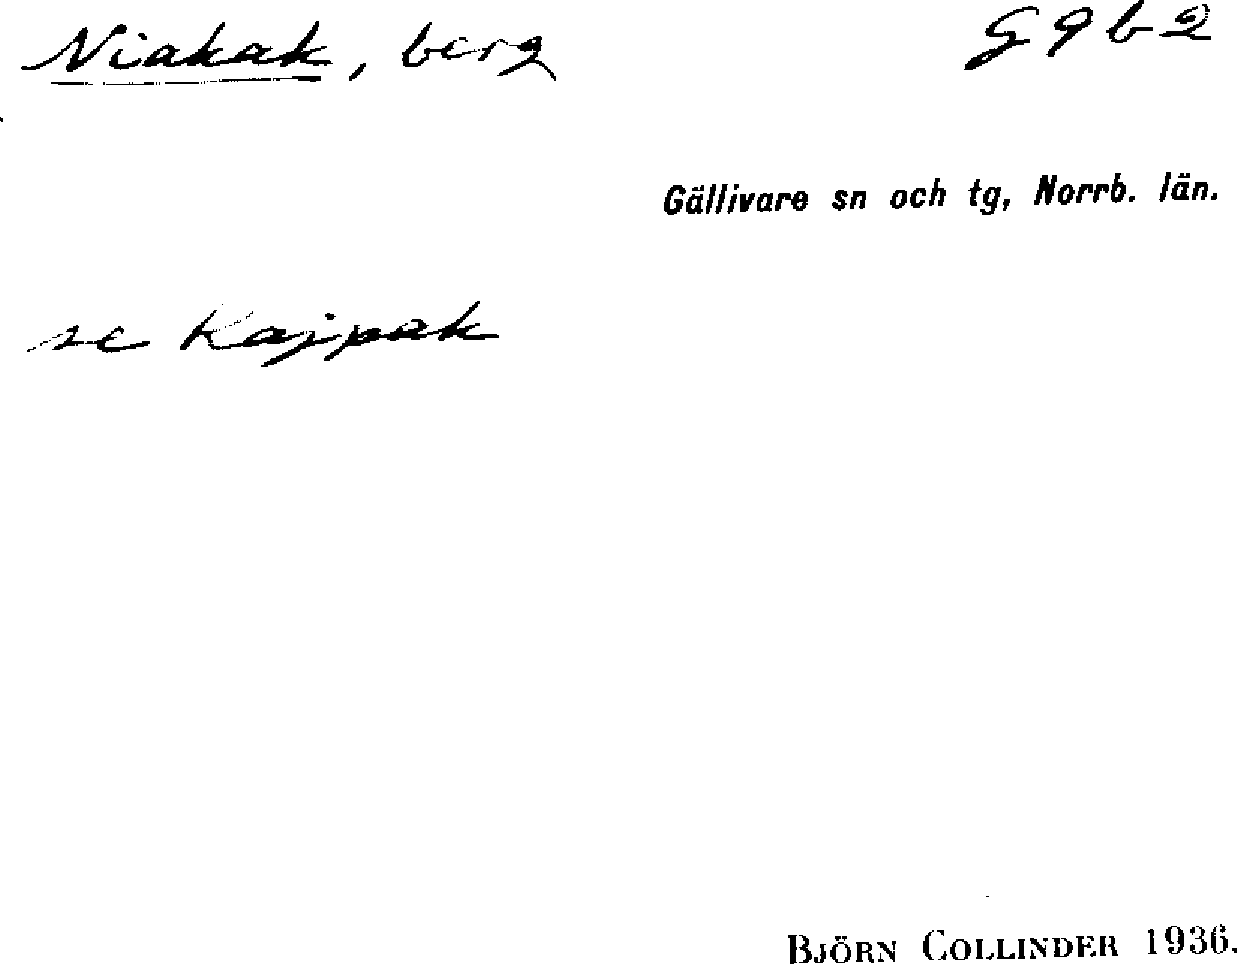 Niakak, berg
G9b2
Gällivare sn och tg, Norrb. län.
se Kajpak
BJÖRN COLLINDER 1936.